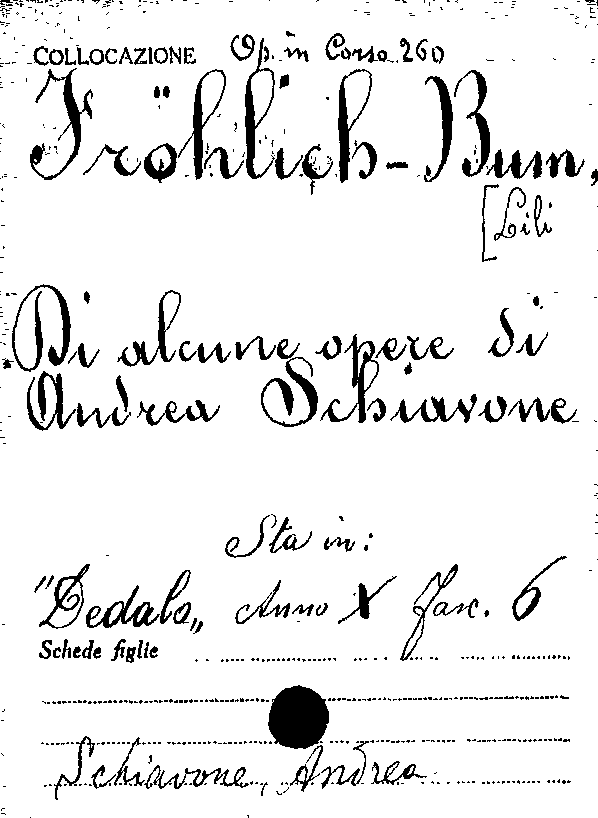 COLLOCAZIONE Op. in Corso 260
Fröhlich-Bum,
[Lili
Di alcune opere di
Andrea Schiavone
Sta in:
"Dedalo„ Anno X fasc. 6
Schede figlie
Schiavone, Andrea